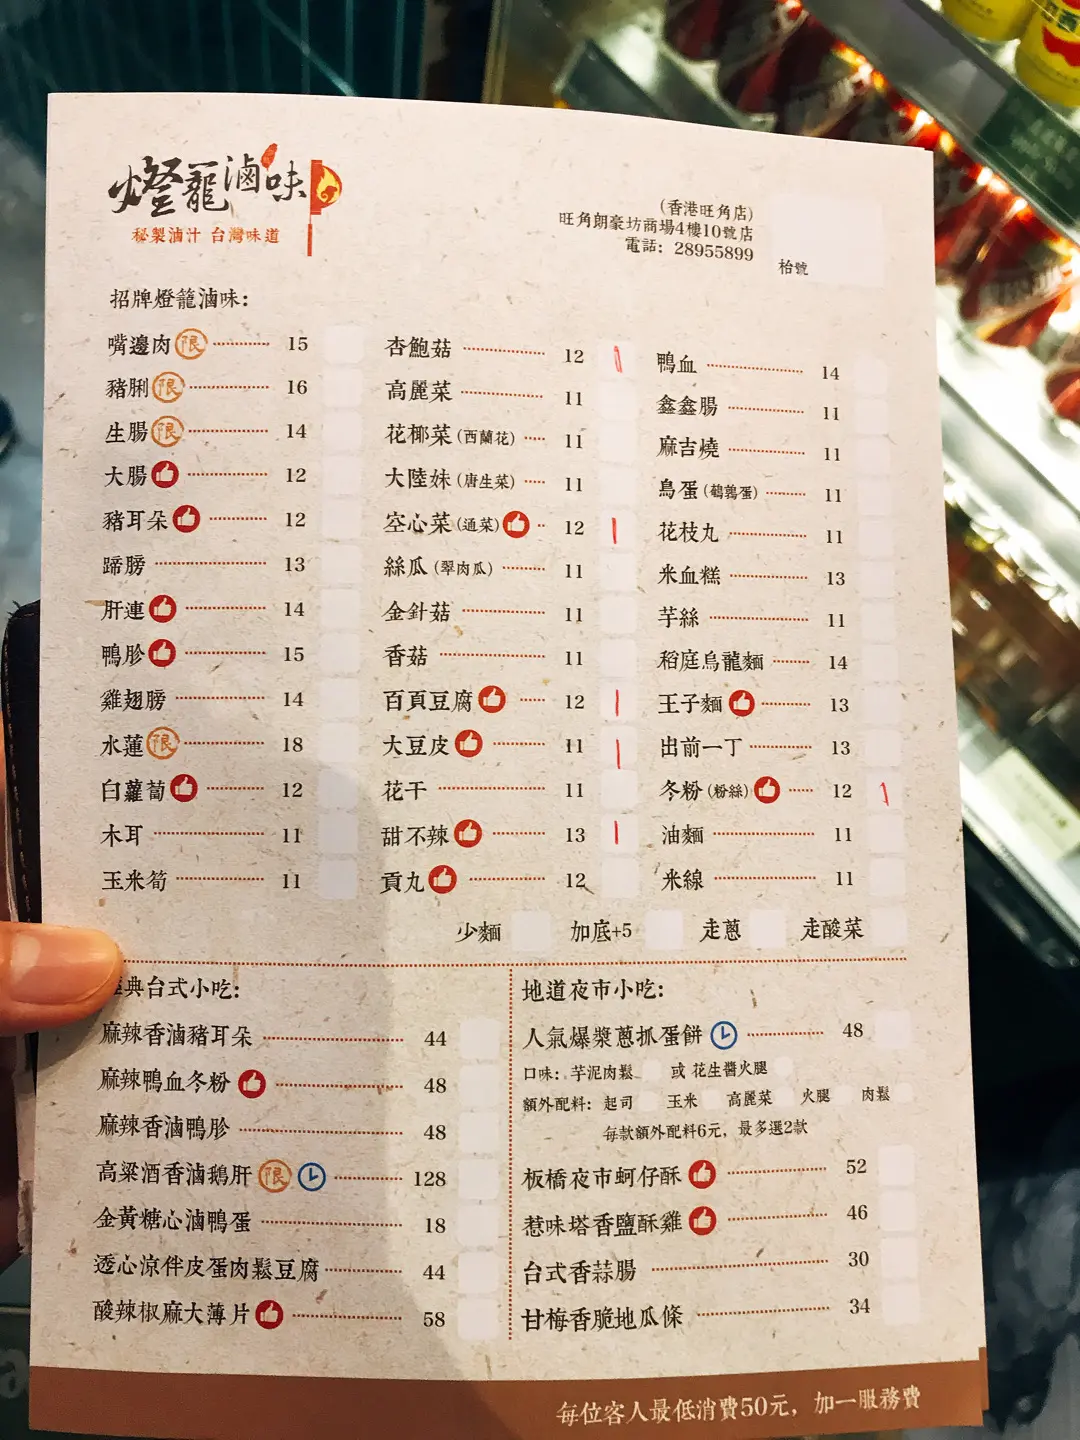 燈籠滷味
秘製滷汁 台灣味道
(香港旺角店)
旺角朗豪坊商場4樓10號店
電話: 28955899
枱號
招牌燈籠滷味:
嘴邊肉 限 15
豬脷 限 16
生腸 限 14
大腸 12
豬耳朵 12
蹄膀 13
肝連 14
鴨胗 15
雞翅膀 14
水蓮 限 18
白蘿蔔 12
木耳 11
玉米筍 11
杏鮑菇 12
高麗菜 11
花椰菜 (西蘭花) 11
大陸妹 (唐生菜) 11
空心菜 (通菜) 12
絲瓜 (翠肉瓜) 11
金針菇 11
香菇 11
百頁豆腐 12
大豆皮 11
花干 11
甜不辣 13
貢丸 12
鴨血 14
鑫鑫腸 11
麻吉燒 11
鳥蛋 (鵪鶉蛋) 11
花枝丸 11
米血糕 13
芋絲 11
稻庭烏龍麵 14
王子麵 13
出前一丁 13
冬粉 (粉絲) 12
油麵 11
米線 11
少麵 加底+5 走蔥 走酸菜
典台式小吃:
麻辣香滷豬耳朵 44
麻辣鴨血冬粉 48
麻辣香滷鴨胗 48
高粱酒香滷鵝肝 限 128
金黃糖心滷鴨蛋 18
透心涼伴皮蛋肉鬆豆腐 44
酸辣椒麻大薄片 58
地道夜市小吃:
人氣爆漿蔥抓蛋餅 48
口味: 芋泥肉鬆 或 花生醬火腿
額外配料: 起司 玉米 高麗菜 火腿 肉鬆
每款額外配料6元, 最多選2款
板橋夜市蚵仔酥 52
惹味塔香鹽酥雞 46
台式香蒜腸 30
甘梅香脆地瓜條 34
每位客人最低消費50元, 加一服務費